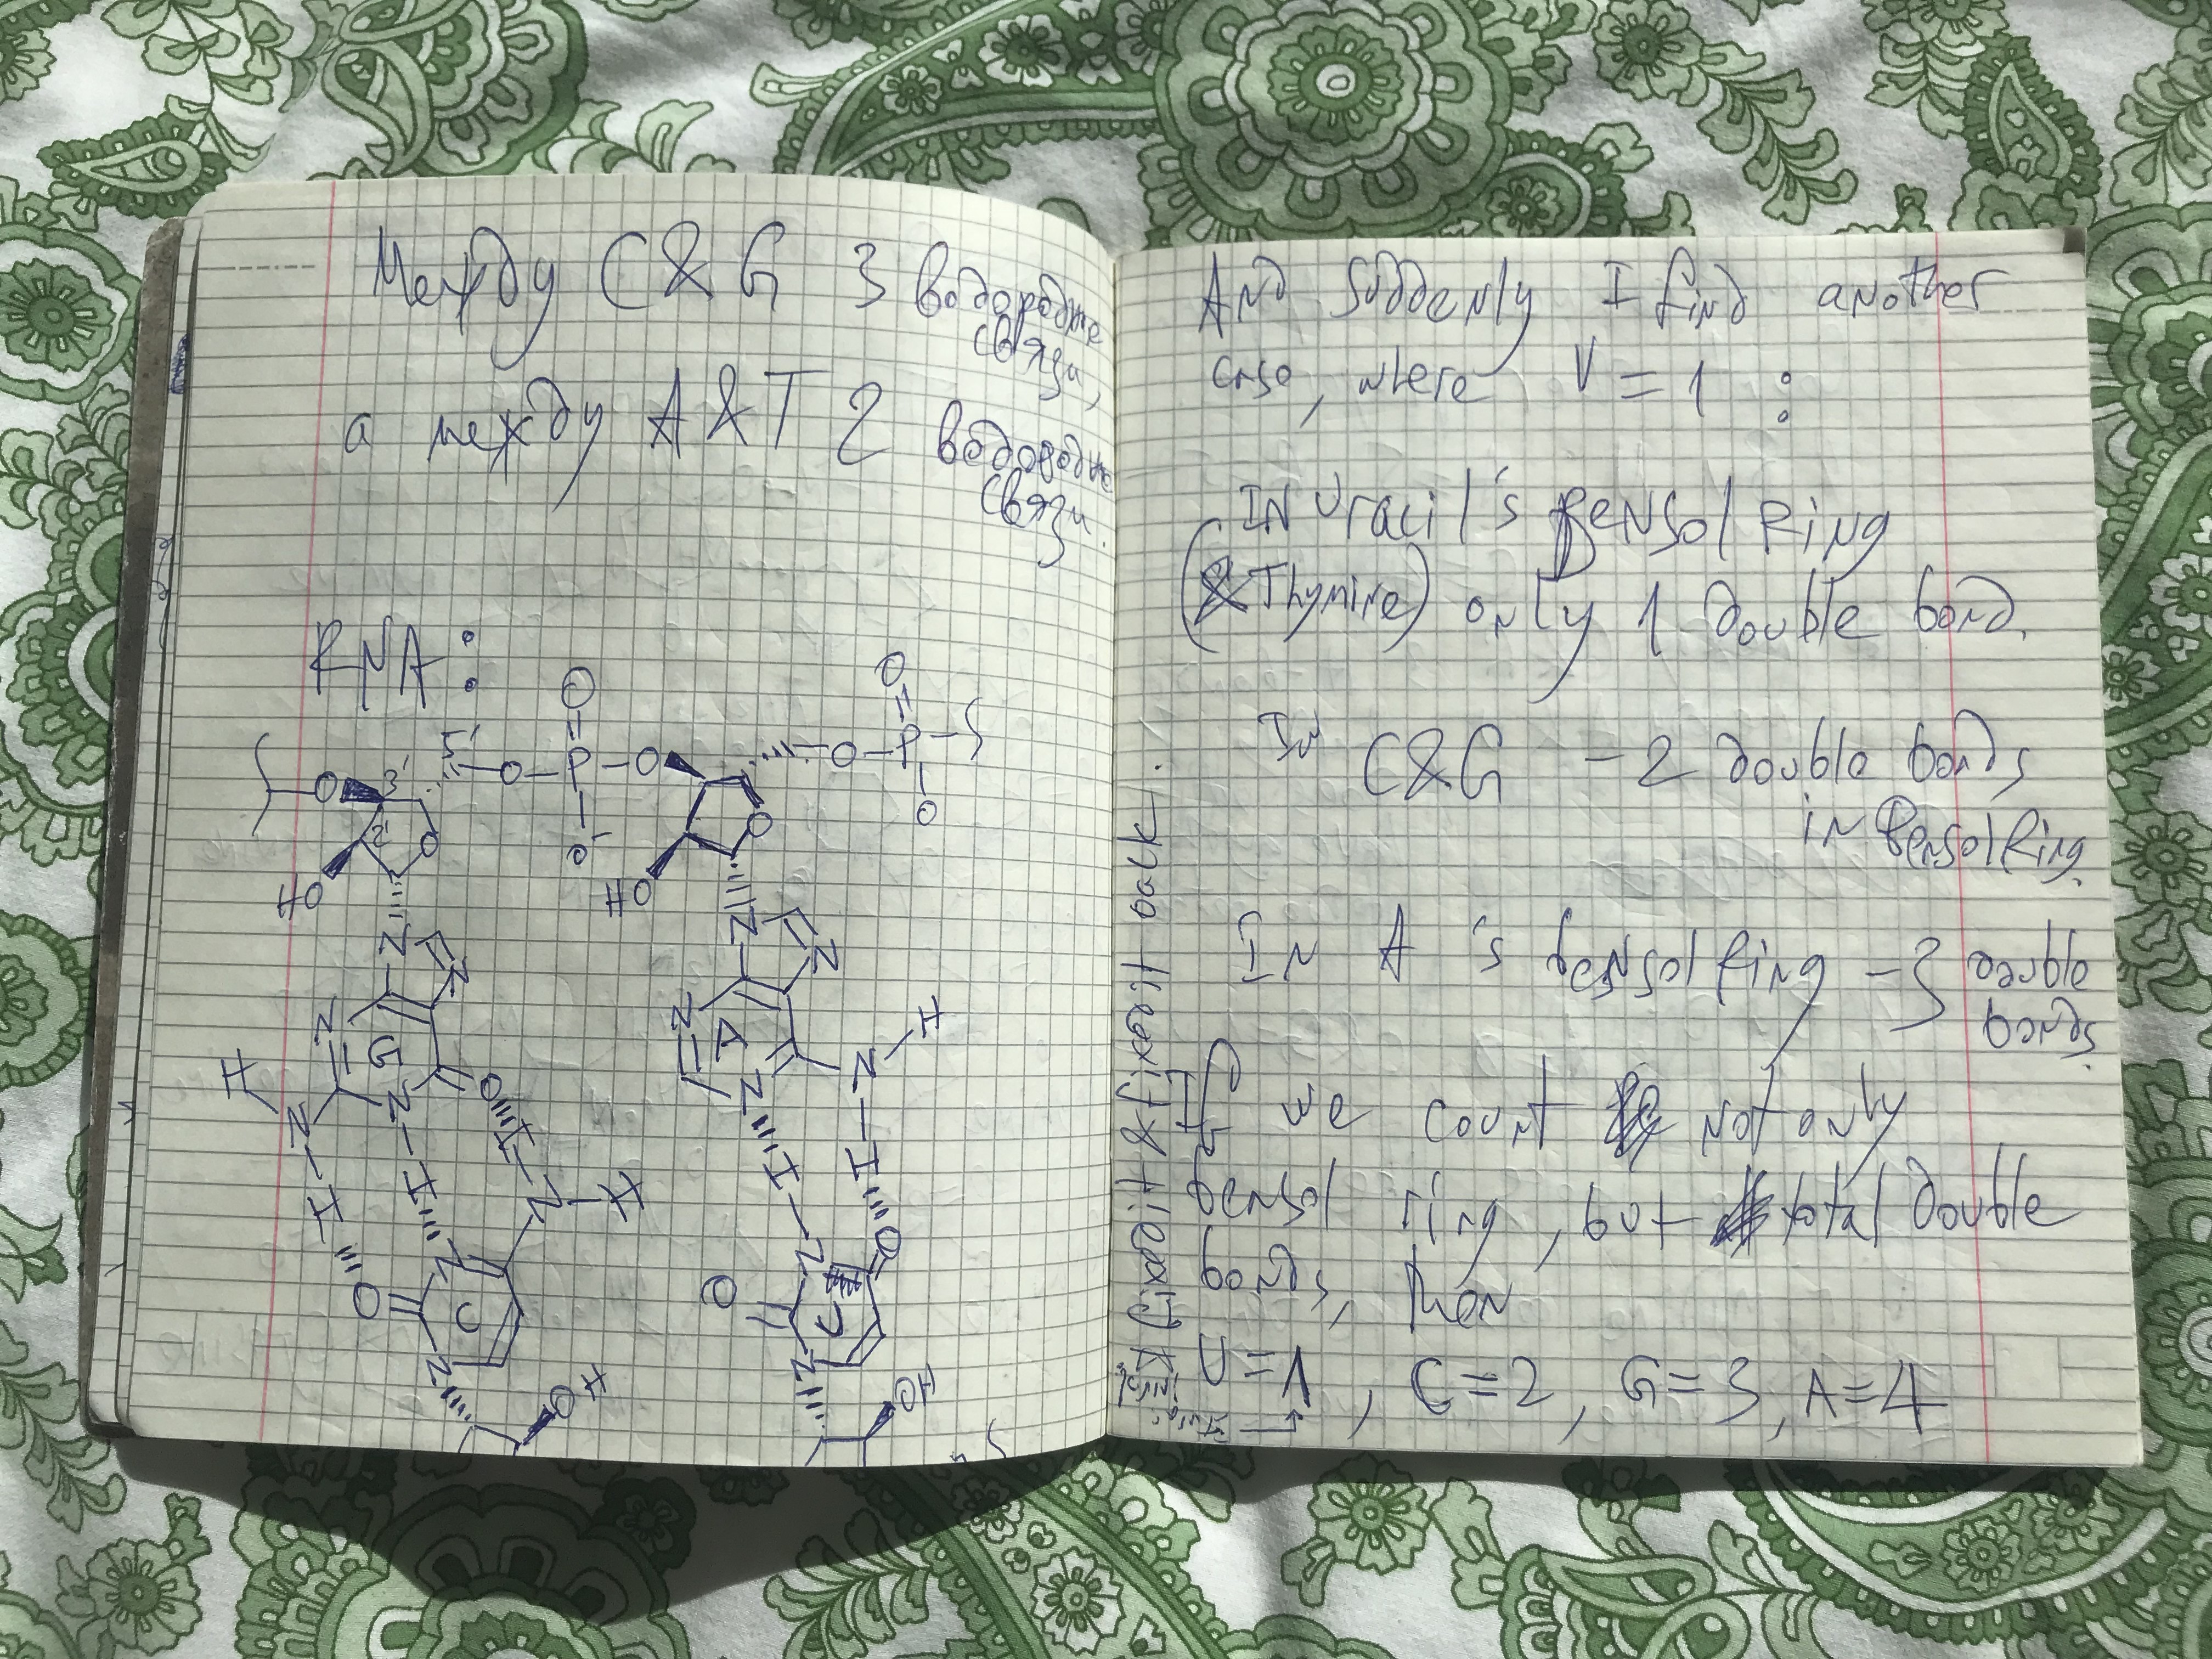 Между C & G 3 водородные
связи,
а между A & T 2 водородные
связи.
RNA:
O 3' 5' O P O P
O O
HO 2' O O- HO O O
N N N N
N G O N A N
H N N H N H
H H H H
O N N H O N O
N C N U
OH OH
And suddenly I find another
case, where U = 1 :
(In Uracil's Bensol Ring
(& Thymine) only 1 double bond.
In C&G - 2 double bonds
in Bensol Ring
In A's bensol ring - 3 double
bonds.
If we count not only
bensol ring, but total double
bonds, then
U=1, C=2, G=3, A=4